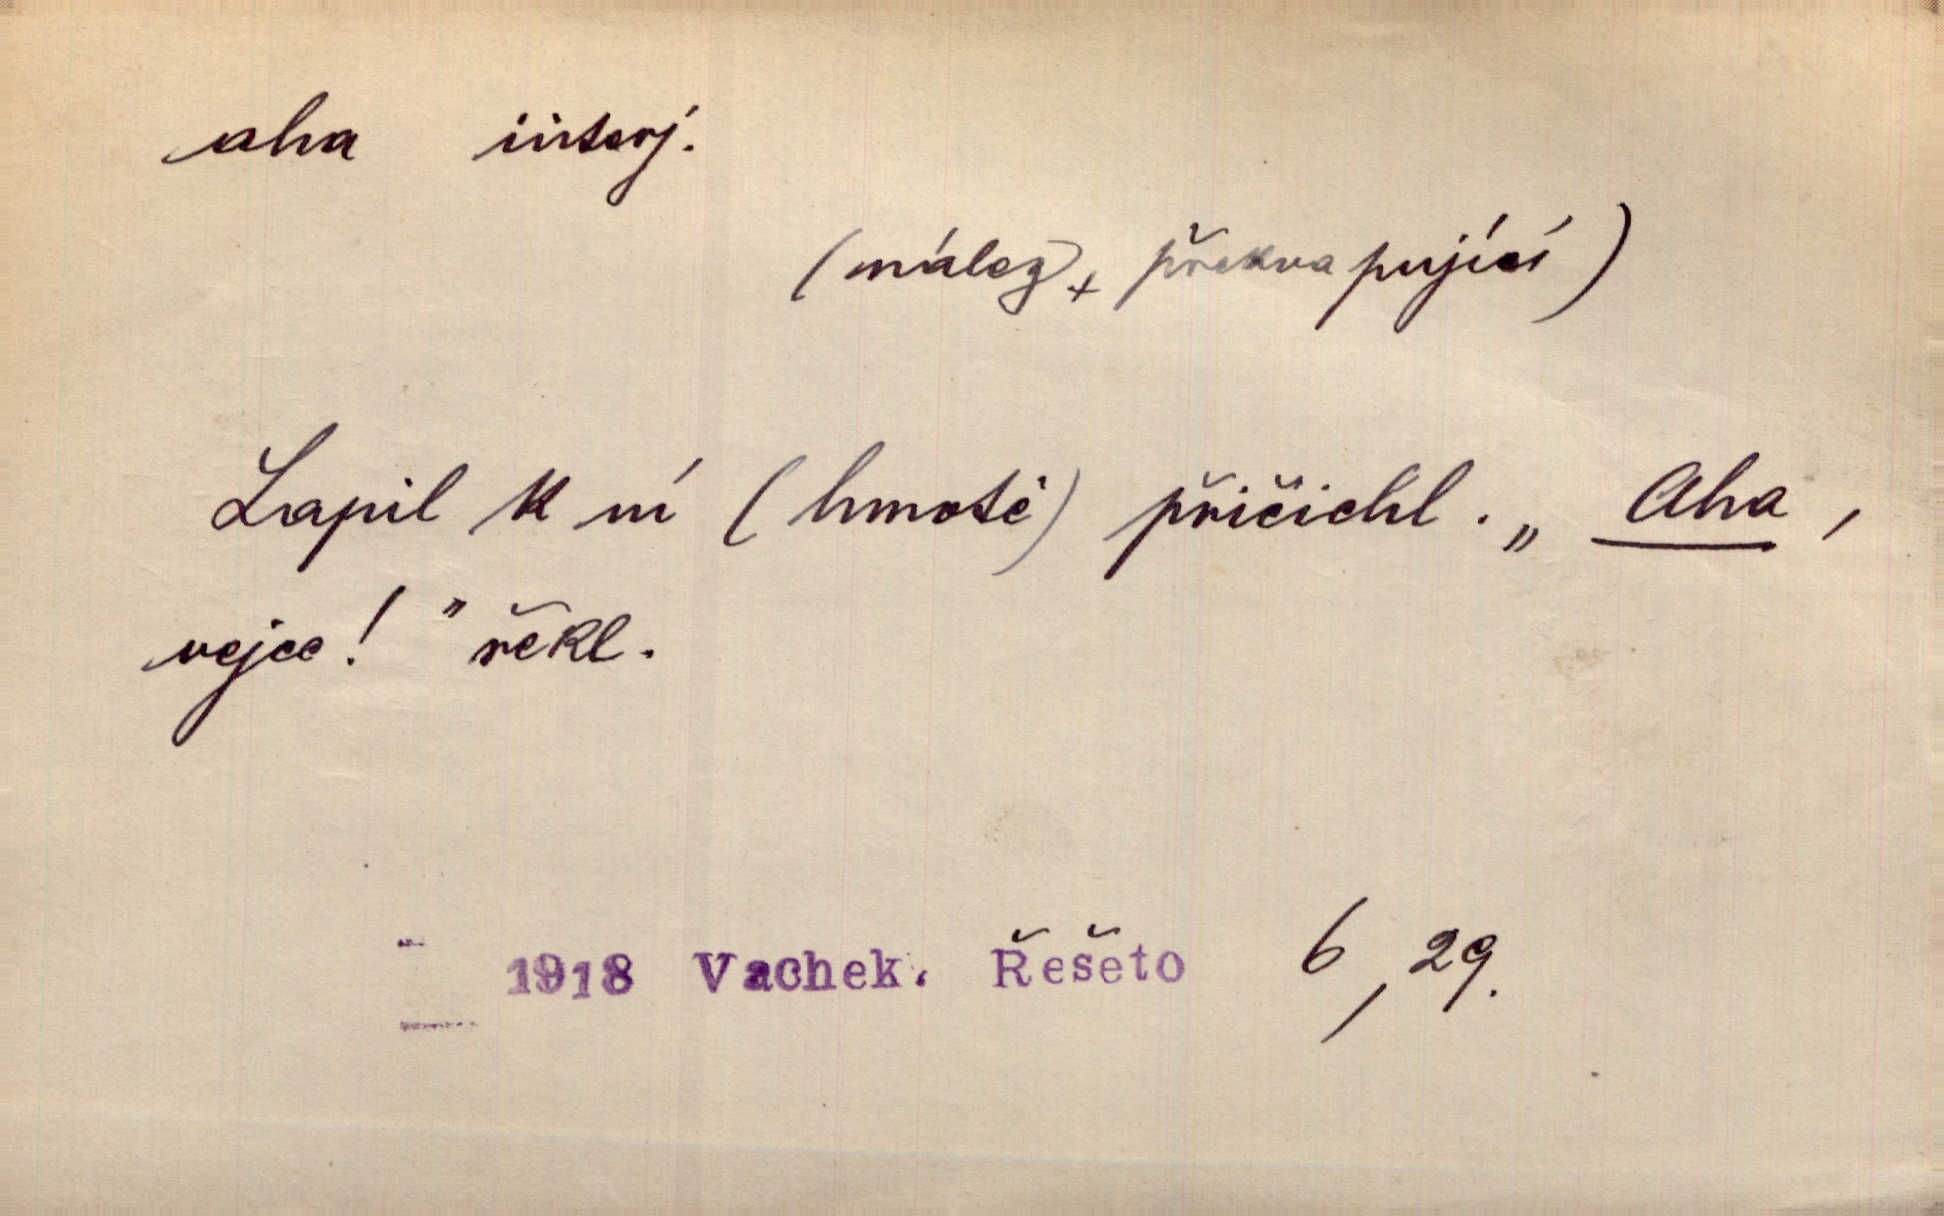 aha interj.
(nález + překvapující)
Lapil k ní (hmotě) přičichl. „Aha,
vejce!" řekl.
1918 Vachek. Řešeto 6, 29.